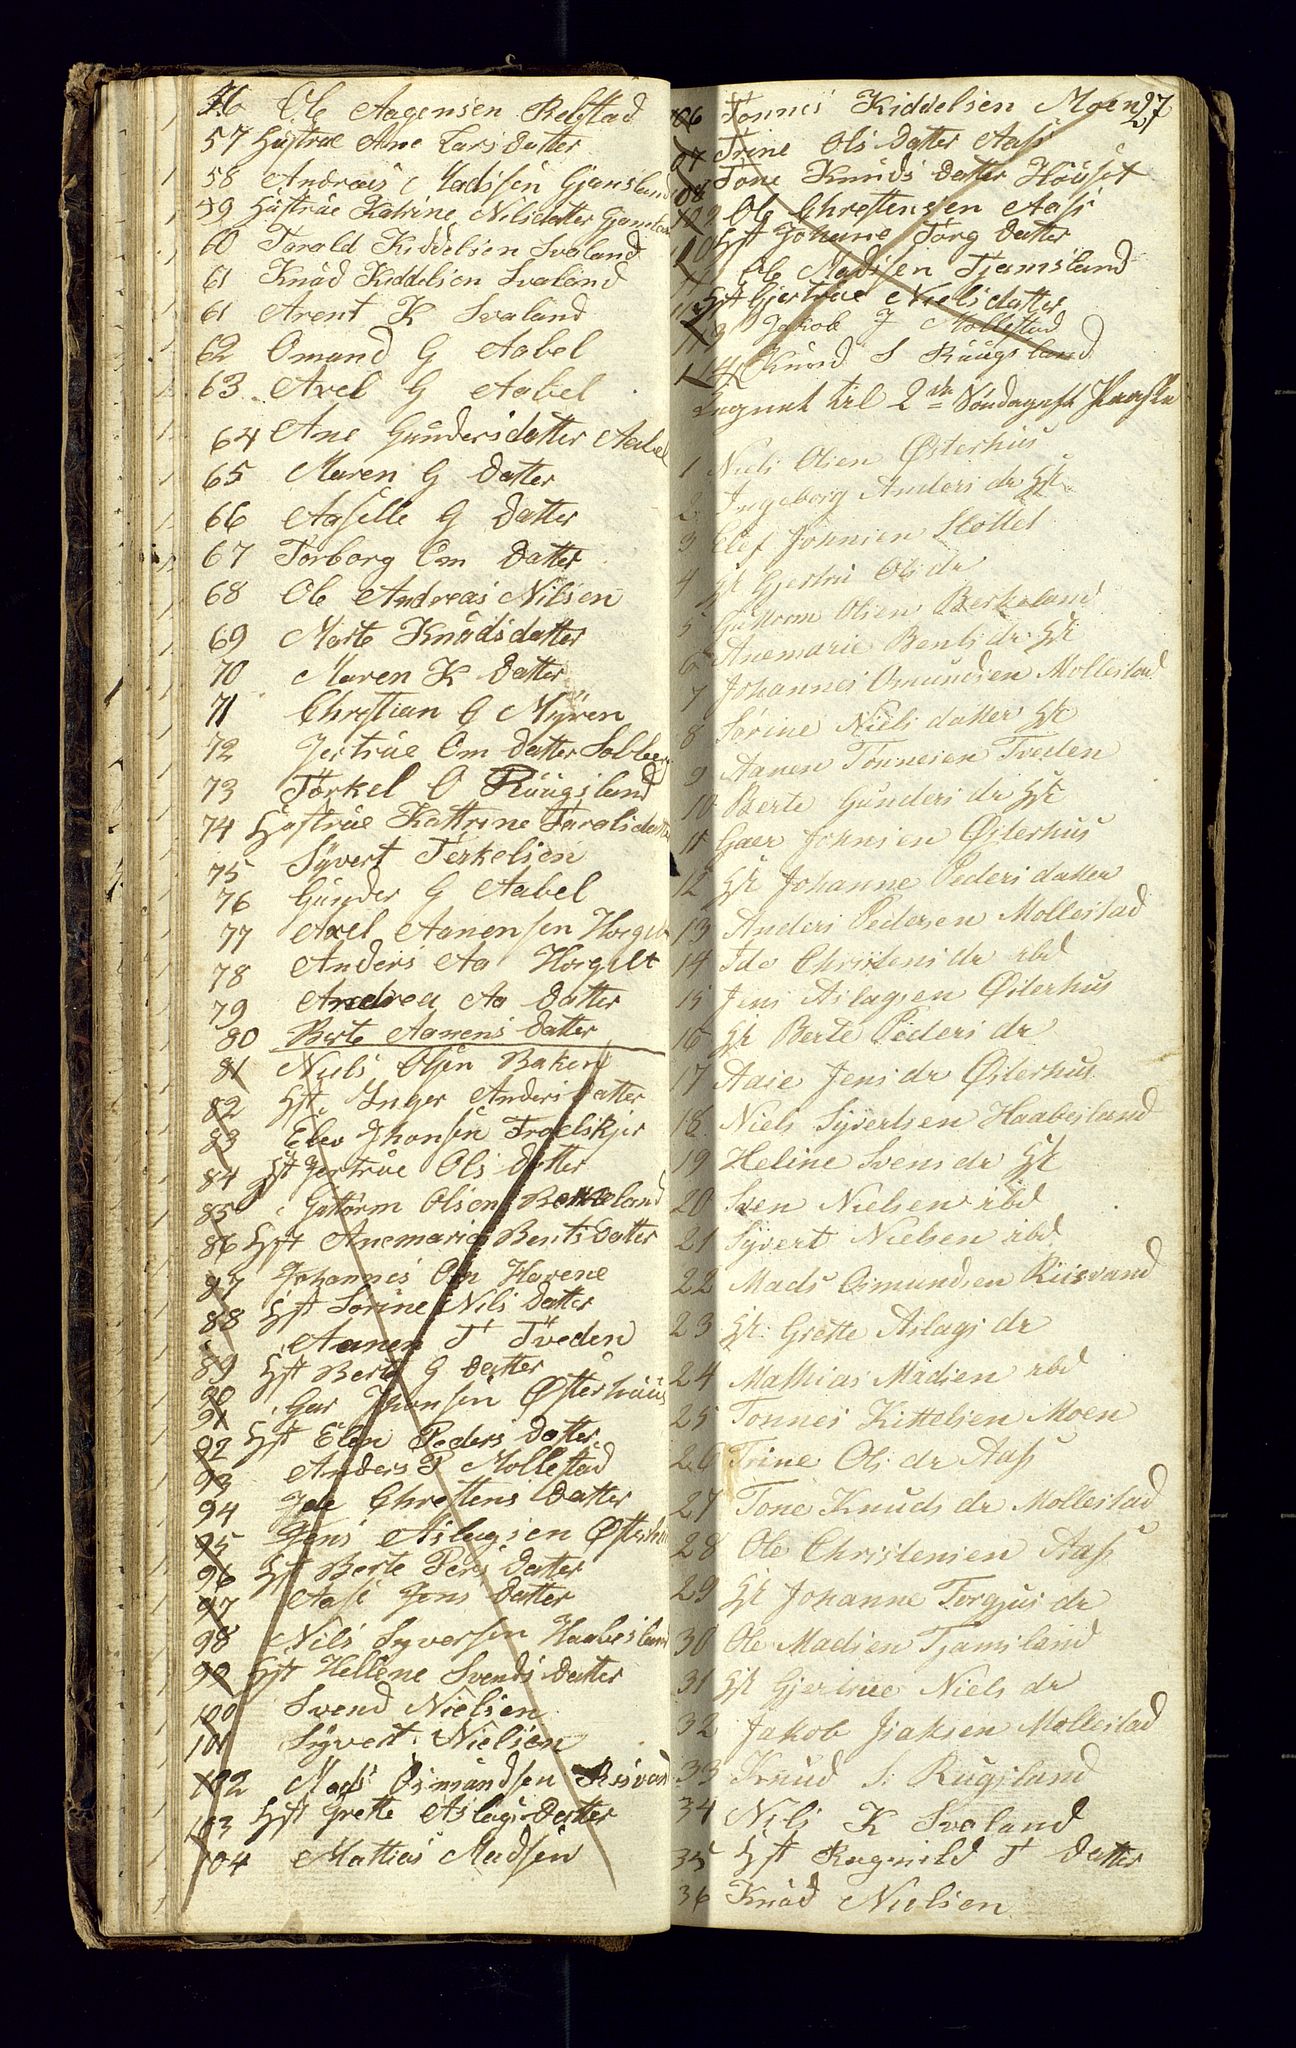 56 Ole Aagensen Refstad
57 Hustrue Ane Larsdatter
58 Andreas Madssen Gjamsland
59 Hustrue Katrine Nilsdatter Gjamsland
60 Tarald Kiddelsen Svaland
61 Knud Kiddelsen Svaland
61 Arent K Svaland
62 Omund G Aabel
63 Axel G Aabel
64 Ane Gundersdatter Aabel
65 Maren G Datter
66 Aasille G Datter
67 Torborg Om Datter
68 Ole Andreas Nilsen
69 Marte Knudsdatter
70 Maren K Datter
71 Chrestian G Myren
72 Jertrue Om Datter Solberg
73 Torkel O Ruugsland
74 Hustrue Kattrine Taralsdatter
75 Syvert Terkelsen
76 Gunder G Aabel
77 Axel Aanensen
78 Anders Aa
79 Andrea Aa Datter
80 Berte Aanens Datter
81 Niels Olsen Baken
82 Hst Inger Anders Datter
83 Elev Jhonsen
84 Hst Jertrue Ols Datter
85 Guttorm Olsen Berkeland
86 Hst Anemarie Bents Datter
87 Johannes Om Havene
88 Hst Sorine Nils Datter
Aanen T Tveden
89 Hst Berte G Datter
90
91 Gar Jhonsen Østerhuus
92 Hst Elen Peders Datter
93 Anders P Mollestad
94 Ide Chrestens Datter
95 Jens Aslagsen Østerhus
96 Hst Berte Pers Datter
97 Aase Jens Datter
98 Nils Syversen Haabesland
99 Hst Hellene Svends Datter
100 Svend Nielsen
101 Syvert Nielsen
102 Mads Osmundsen Risvand
103 Hst Grette Aslags Datter
104 Mattias Madsen
27
106 Tonnes Kiddelsen Moen
107 Trine Ols Datter Aass
108 Tone Knuds Datter
109 Ole Chrestensen Aass
110 Hst Johane Torg Datter
111 Ole Madssen Tjamsland
112 Hst Gjertrue Nielsdatter
113 Jakob J Mollestad
114 Knud S Ruugsland
til 2de Søndag eft Paaske
1 Niels Olsen Østerhus
2 Ingeborg Anders dr Hst
3 Elef Johnsen Slottet
4 Hst Gjertru Ols dr
5 Guttorm Olsen Berkeland
6 Anemarie Bents dr Hst
7 Johannes Omundsen Mollestad
8 Sorine Niels datter Hst
9 Aanen Tonnesen Tveden
10 Berte Gunders dr Hst
11 Gaer Johnsen Østerhus
12 Hst Johanne Peders datter
13 Anders Pedersen Mollestad
14 Ide Christens dr ibd
15 Jens Aslagsen Østerhus
16 Hst Berte Peders dr
17 Aase Jens dr Østerhus
18 Niels Syvertsen Haabesland
19 Heline Svens dr Hst
20 Sven Nielsen ibd
21 Syvert Nielsen ibd
22 Mads Osmundsen Riisvand
23 Hst Grette Aslags dr
24 Mathias Madsen ibd
25 Tonnes Kittelsen Moen
26 Trine Ols dr Aass
27 Tone Knuds dr Mollestad
28 Ole Christensen Aass
29 Hst Johanne Torgjus dr
30 Ole Madsen Tjamsland
31 Hst Gjertrue Niels dr
32 Jakob Isaksen Mollestad
33 Knud S: Rugsland
34 Nils K Svaland
35 Hst Ragnild T Datter
36 Knud Nielsen